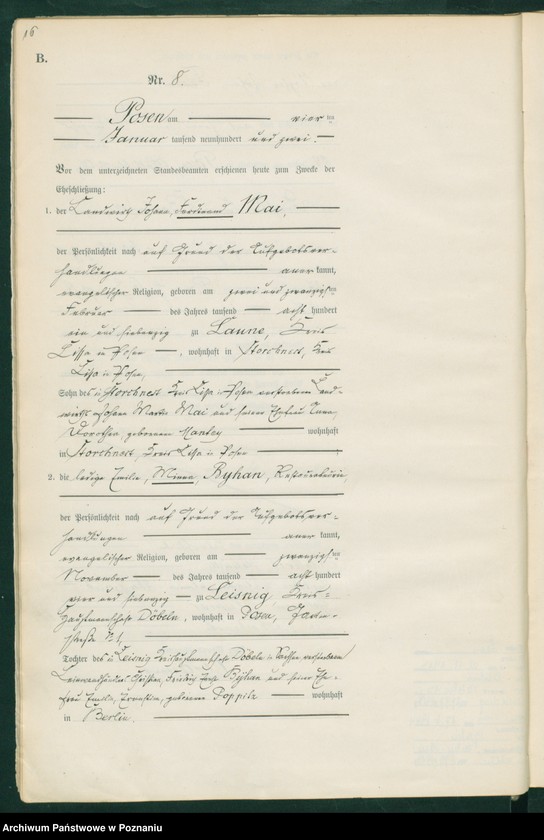 16
B.
Nr. 8.
Posen am vier ten
Januar tausend neunhundert und zwei.
Vor dem unterzeichneten Standesbeamten erschienen heute zum Zwecke der
Eheschließung:
1. der Landwirth Johann Ferdinand Mai,
der Persönlichkeit nach auf Grund der Aufgebotsver-
handlungen aner kannt,
evangelischer Religion, geboren am zwei und zwanzigsten
Februar des Jahres tausend acht hundert
ein und siebenzig zu Laune, Kreis
Lissa in Posen, wohnhaft in Storchnest, Kreis
Lissa in Posen,
Sohn des in Storchnest Kreis Lissa in Posen verstorbenen Land-
wirths Johann Mai und seiner Ehefrau Anna
Dorothea, geborenen wohnhaft
in Storchnest, Kreis Lissa in Posen
2. die ledige Emilie, Minna, Byhan,
der Persönlichkeit nach auf Grund der Aufgebotsver-
handlungen aner kannt,
evangelischer Religion, geboren am zwanzigsten
November des Jahres tausend acht hundert
vier und siebenzig zu Leisnig Kreis-
hauptmannschaft Döbeln, wohnhaft in Posen,
straße
Tochter des in Leisnig Kreishauptmannschaft Döbeln in Sachsen verstorbenen
Byhan und seiner Ehe-
frau Emilie, Ernestine, geborene wohnhaft
in Berlin.
Archiwum Państwowe w Poznaniu